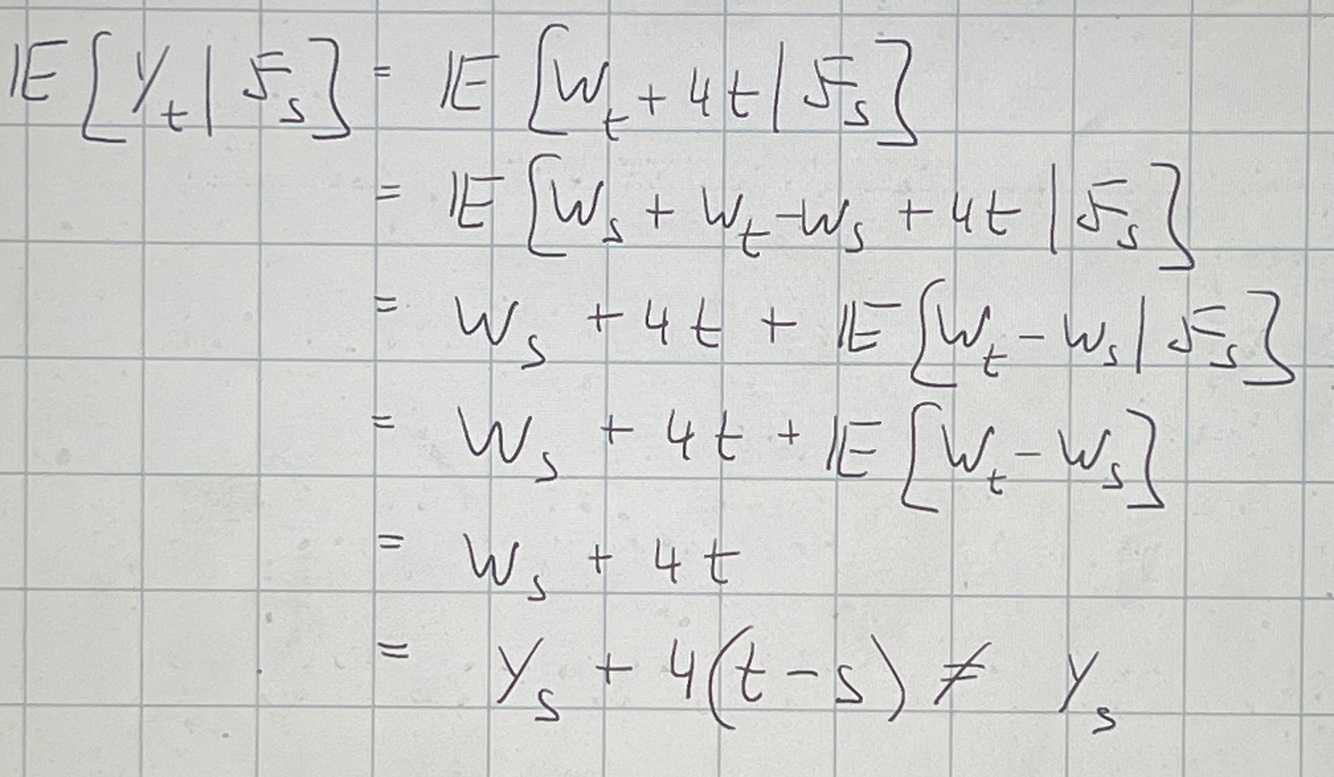 𝔼[Y_t | ℱ_s] = 𝔼[W_t + 4t | ℱ_s]
= 𝔼[W_s + W_t - W_s + 4t | ℱ_s]
= W_s + 4t + 𝔼[W_t - W_s | ℱ_s]
= W_s + 4t + 𝔼[W_t - W_s]
= W_s + 4t
= Y_s + 4(t - s) ≠ Y_s